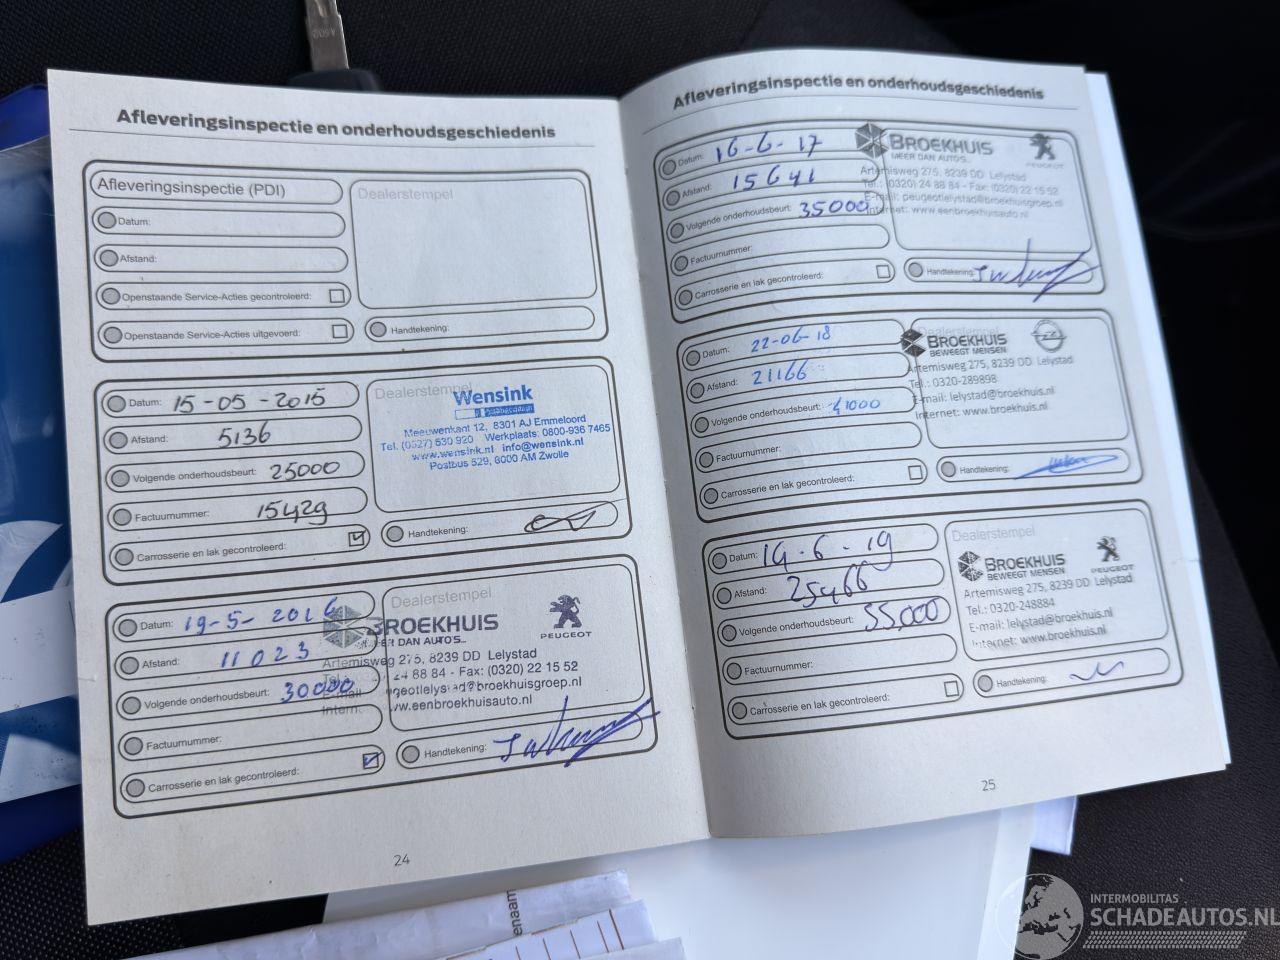 Afleveringsinspectie en onderhoudsgeschiedenis
Afleveringsinspectie (PDI)
Datum:
Afstand:
Openstaande Service-Acties gecontroleerd:
Openstaande Service-Acties uitgevoerd:
Dealerstempel
Handtekening:
Datum: 15-05-2015
Afstand: 5136
Volgende onderhoudsbeurt: 25000
Factuurnummer: 15429
Carrosserie en lak gecontroleerd:
Dealerstempel
Wensink
Meeuwenkant 12, 8301 AJ Emmeloord
Tel. (0527) 630 920 Werkplaats: 0800-936 7465
www.wensink.nl info@wensink.nl
Postbus 529, 8000 AM Zwolle
Handtekening:
Datum: 19-5-2016
Afstand: 11023
Volgende onderhoudsbeurt: 30000
Factuurnummer:
Carrosserie en lak gecontroleerd:
Dealerstempel
BROEKHUIS
MEER DAN AUTO'S...
PEUGEOT
Artemisweg 275, 8239 DD Lelystad
24 88 84 - Fax: (0320) 22 15 52
@broekhuisgroep.nl
www.eenbroekhuisauto.nl
Handtekening:
24
Afleveringsinspectie en onderhoudsgeschiedenis
Datum: 16-6-17
Afstand: 15641
Volgende onderhoudsbeurt: 35000
Factuurnummer:
Carrosserie en lak gecontroleerd:
BROEKHUIS
MEER DAN AUTO'S...
PEUGEOT
Artemisweg 275, 8239 DD Lelystad
Tel.: (0320) 24 88 84 - Fax: (0320) 22 15 52
E-mail: peugeotlelystad@broekhuisgroep.nl
Internet: www.eenbroekhuisauto.nl
Handtekening:
Datum: 22-06-18
Afstand: 21166
Volgende onderhoudsbeurt: 41000
Factuurnummer:
Carrosserie en lak gecontroleerd:
Dealerstempel
BROEKHUIS
BEWEEGT MENSEN
Artemisweg 275, 8239 DD Lelystad
Tel.: 0320-289898
E-mail: lelystad@broekhuis.nl
Internet: www.broekhuis.nl
Handtekening:
Datum: 19-6-19
Afstand: 25466
Volgende onderhoudsbeurt: 55,000
Factuurnummer:
Carrosserie en lak gecontroleerd:
Dealerstempel
BROEKHUIS
BEWEEGT MENSEN
PEUGEOT
Artemisweg 275, 8239 DD Lelystad
Tel.: 0320-248884
E-mail: lelystad@broekhuis.nl
Internet: www.broekhuis.nl
Handtekening:
25
INTERMOBILITAS
SCHADEAUTOS.NL